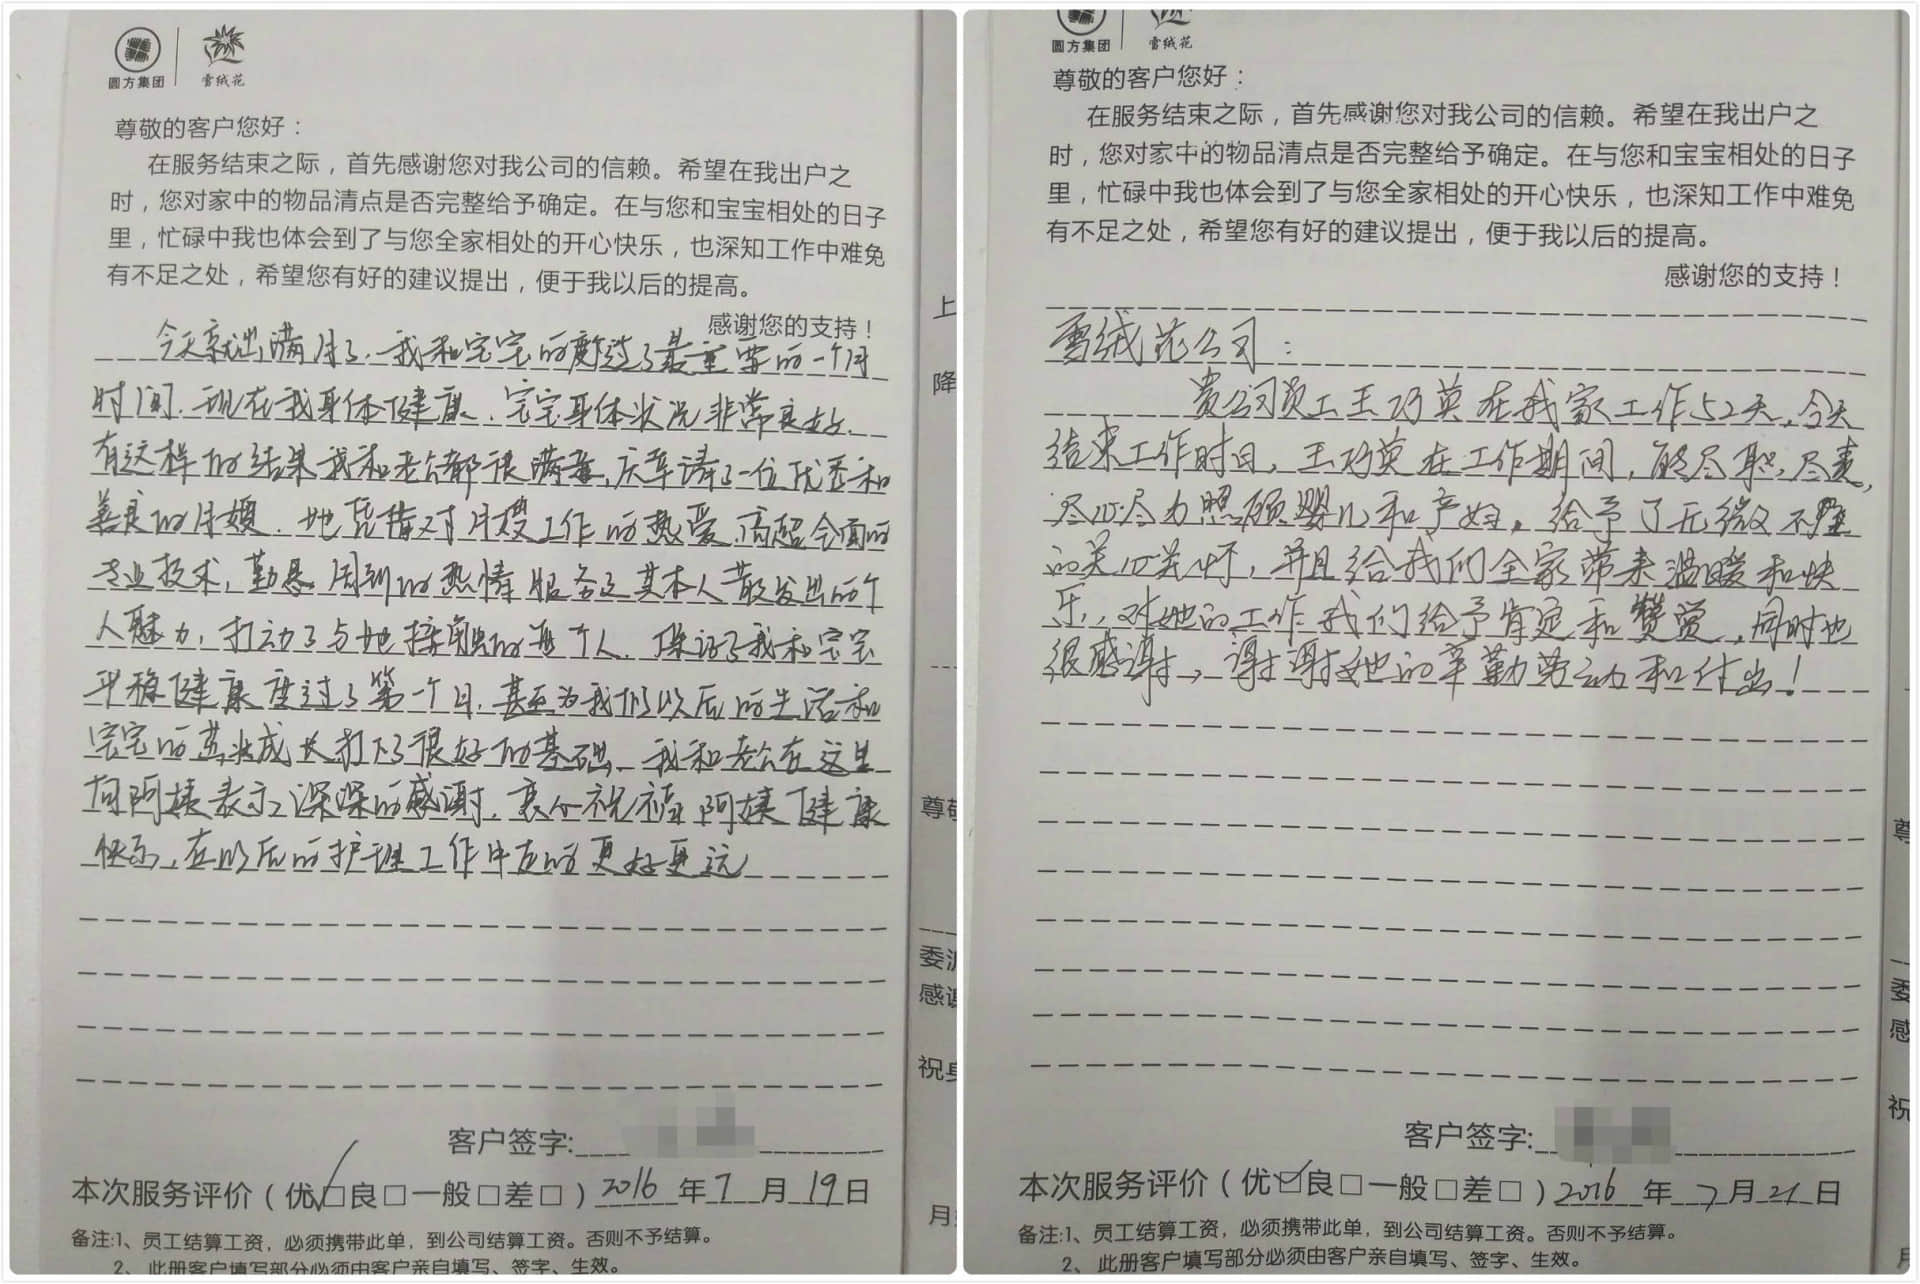 圆方集团 雪绒花
尊敬的客户您好：
在服务结束之际，首先感谢您对我公司的信赖。希望在我出户之
时，您对家中的物品清点是否完整给予确定。在与您和宝宝相处的日子
里，忙碌中我也体会到了与您全家相处的开心快乐，也深知工作中难免
有不足之处，希望您有好的建议提出，便于我以后的提高。
感谢您的支持！
今天就出满月了，我和宝宝的度过了最重要的一个月
时间，现在我身体健康，宝宝身体状况非常良好，
有这样的结果我和老公都很满意，庆幸请了一位优秀和
善良的月嫂，她凭借对月嫂工作的热爱，高超全面的
专业技术，勤恳周到的热情服务及其本人散发出的个
人魅力，打动了与她接触的每个人，保证了我和宝宝
平稳健康度过了第一个月，甚至为我们以后的生活和
宝宝的茁壮成长打下了很好的基础，我和老公在这里
向阿姨表示深深的感谢，衷心祝福阿姨健康
快乐，在以后的护理工作中走的更好更远
客户签字:
本次服务评价（优□良□一般□差□）2016年7月19日
备注:1、员工结算工资，必须携带此单，到公司结算工资。否则不予结算。
2、此册客户填写部分必须由客户亲自填写、签字、生效。
上
降
尊敬
委派
感谢
祝身
月
圆方集团 雪绒花
尊敬的客户您好：
在服务结束之际，首先感谢您对我公司的信赖。希望在我出户之
时，您对家中的物品清点是否完整给予确定。在与您和宝宝相处的日子
里，忙碌中我也体会到了与您全家相处的开心快乐，也深知工作中难免
有不足之处，希望您有好的建议提出，便于我以后的提高。
感谢您的支持！
雪绒花公司：
贵公司员工王巧英在我家工作52天，今天
结束工作时日，王巧英在工作期间，能尽职，尽责，
尽心尽力照顾婴儿和产妇，给予了无微不至
的关心关怀，并且给我们全家带来温暖和快
乐，对她的工作我们给予肯定和赞赏，同时也
很感谢，谢谢她的辛勤劳动和付出！
客户签字:
本次服务评价（优□良□一般□差□）2016年7月21日
备注:1、员工结算工资，必须携带此单，到公司结算工资。否则不予结算。
2、此册客户填写部分必须由客户亲自填写、签字、生效。
尊
委
感
祝
月